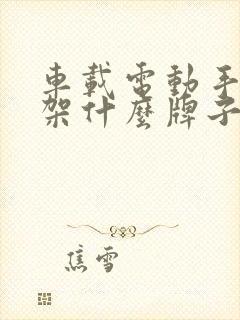 車載電動手
架什麼牌子
焦雪